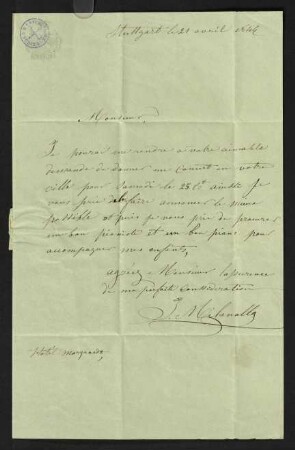 Stuttgart le 21 avril 1844
Monsieur,
Je pourai me rendre a votre aimable
demande de donner un Concert en votre
ville pour Samedi le 28 Ct ainsi Je
vous prie de le faire annoncer le mieux
possible et puis je vous prie de procurer
un bon pianiste et un bon piano pour
accompagner mes enfants,
agréez Monsieur l'assurance
de ma parfaite Considération
J. Milanollo
Hotel Marquardt,